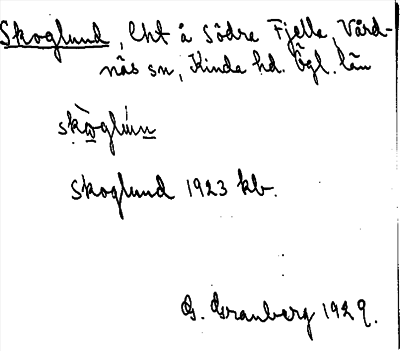 Skoglund, lht å Södra Fjella, Vård-
näs sn, Kinda hd. Ögl. län
skòglún
Skoglund 1923 kb.
G. Granberg 1929.